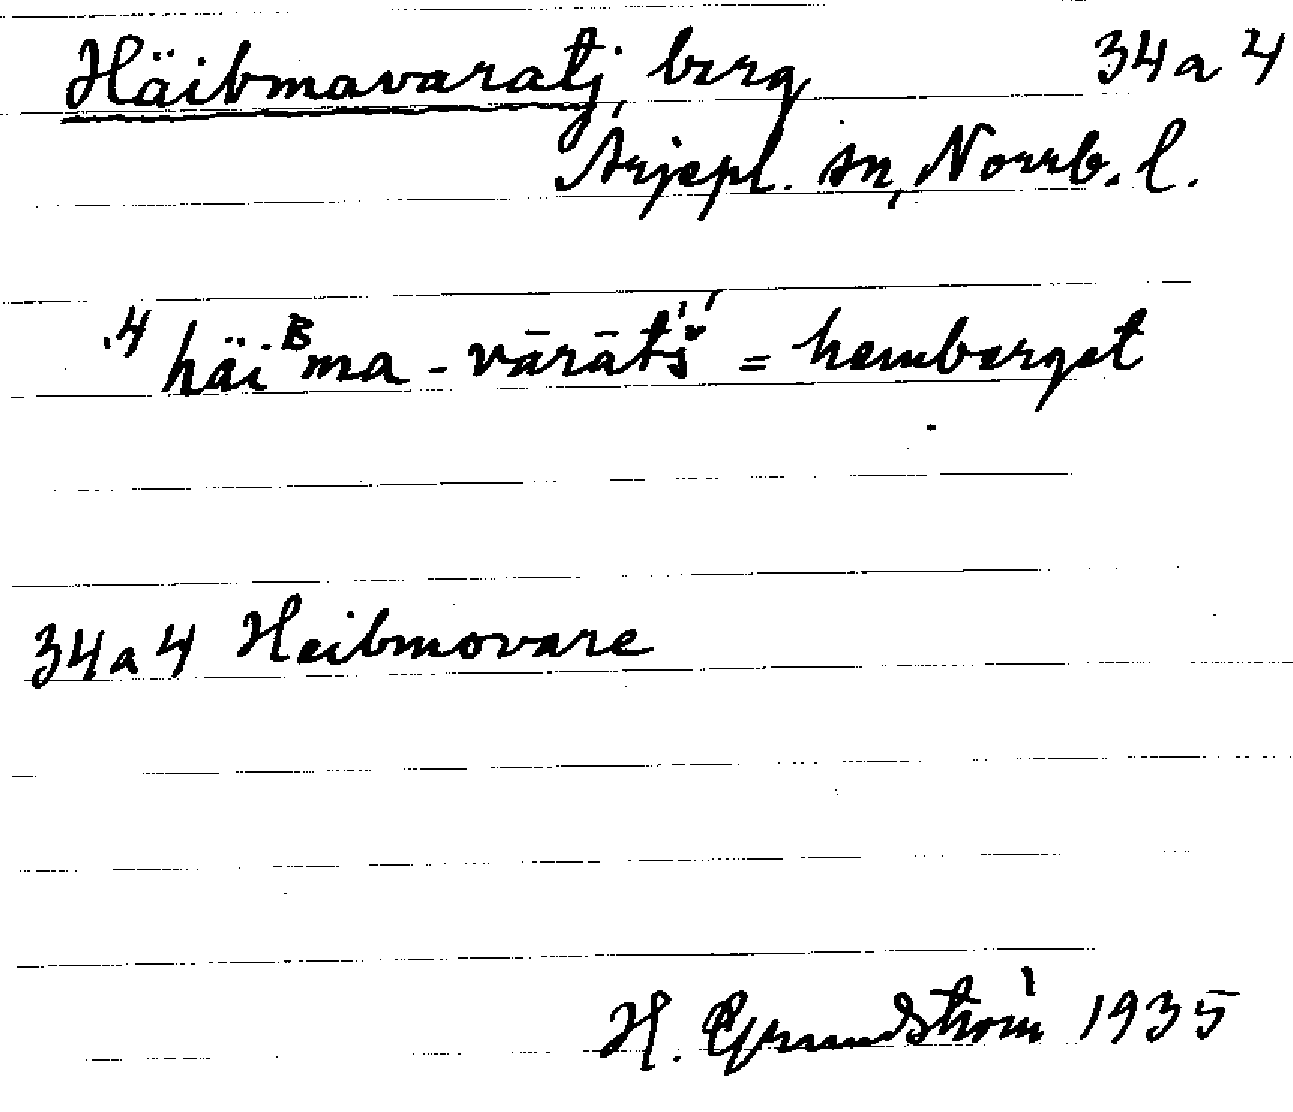 Häibmavaratj, berg 34a4
Arjepl. sn, Norrb. l.
.4 häiᴮma - vārātš́' = hemberget
34a4 Heibmovare
H. Grundström 1935